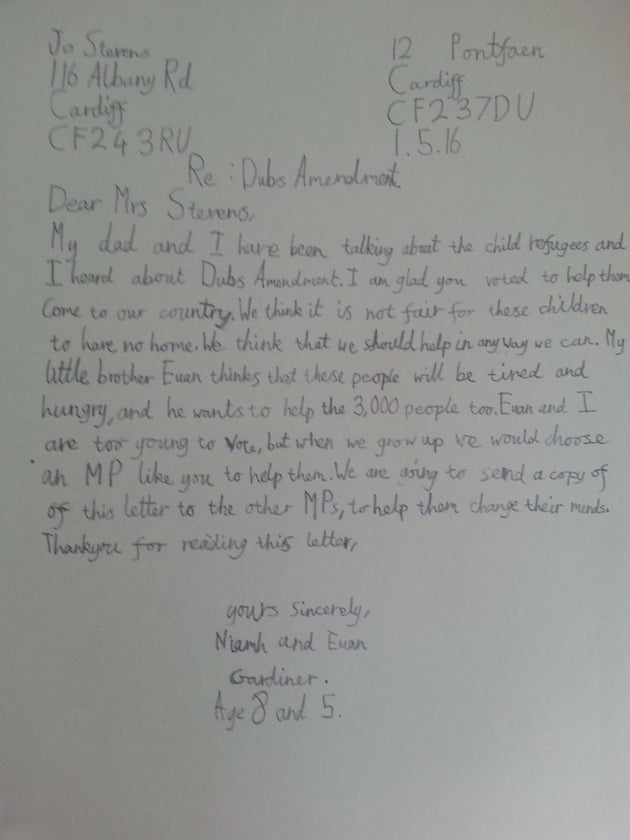 Jo Stevens
116 Albany Rd
Cardiff
CF24 3RU
12 Pontfaen
Cardiff
CF237DU
1.5.16
Re : Dubs Amendment.
Dear Mrs Stevens,
My dad and I have been talking about the child refugees and
I heard about Dubs Amendment. I am glad you voted to help them
come to our country. We think it is not fair for these children
to have no home. We think that we should help in any way we can. My
little brother Euan thinks that these people will be tired and
hungry, and he wants to help the 3,000 people too. Euan and I
are too young to vote, but when we grow up we would choose
an MP like you to help them. We are going to send a copy of
of this letter to the other MPs, to help them change their minds.
Thankyou for reading this letter,
yours sincerely,
Niamh and Euan
Gardiner.
Age 8 and 5.